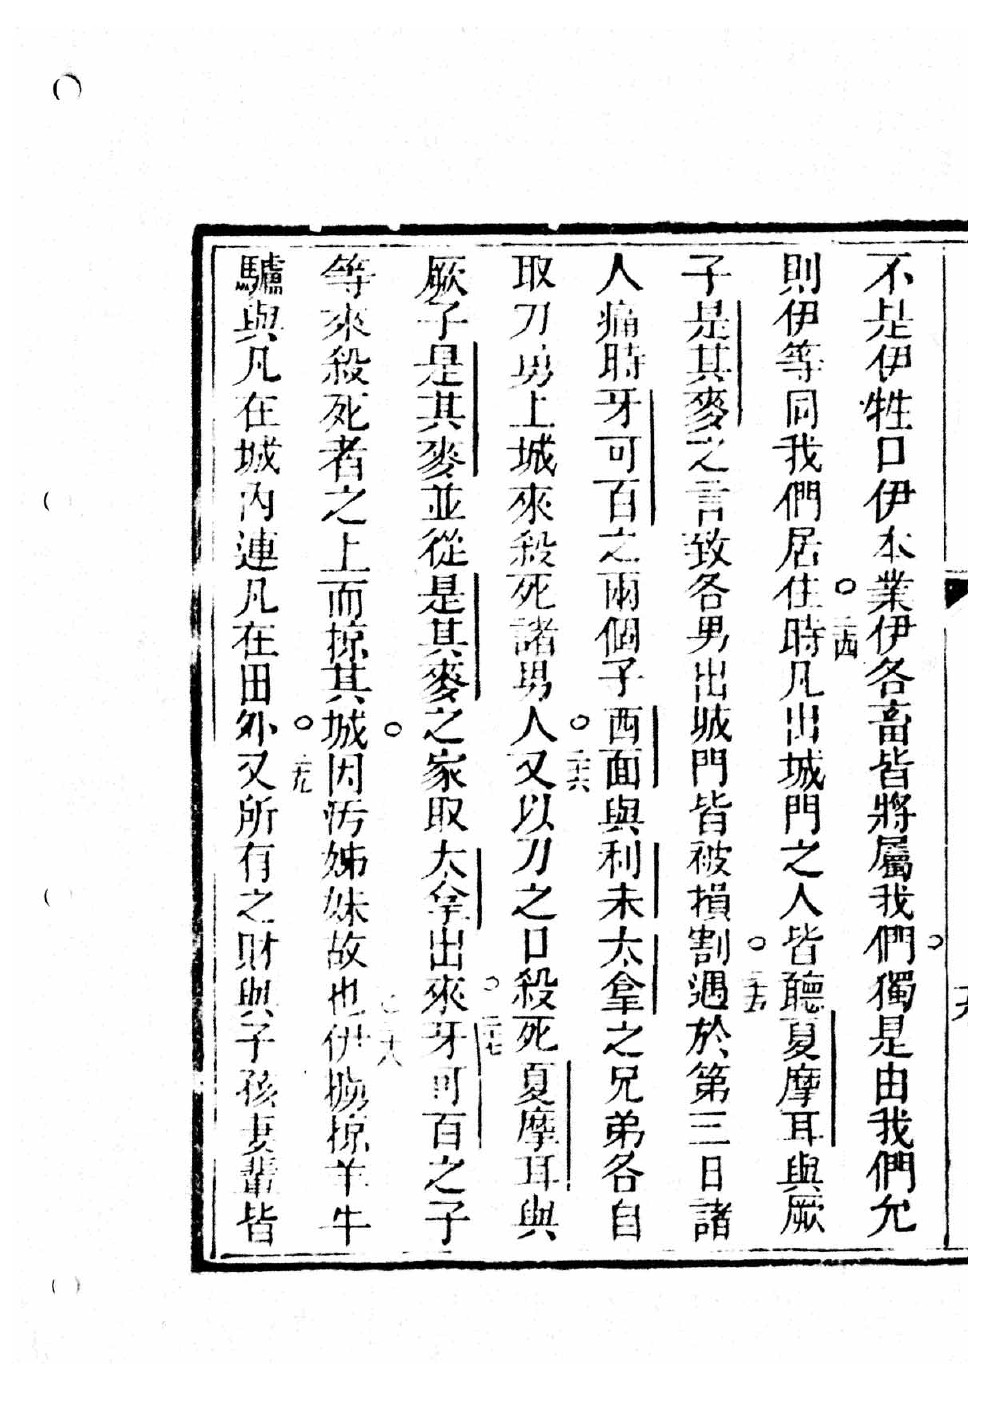 不是伊牲口伊本業伊各畜皆將屬我們○獨是由我們允
則伊等同我們居住○二四時凡出城門之人皆聽夏摩耳與厥
子是其麥之言致各男出城門皆被損割○二五遇於第三日諸
人痛時牙可百之兩個子西面與利未太拿之兄弟各自
取刀勇上城來殺死諸男人○二六又以刀之口殺死夏摩耳與
厥子是其麥並從是其麥之家取太拿出來○二七牙可百之子
等來殺死者之上而掠其城○因污姊妹故也○二八伊擄掠羊牛
驢與凡在城內連凡在田外○二九又所有之財與子孩妻輩皆